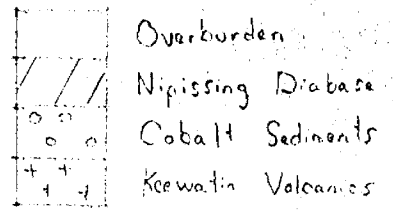 Overburden
Nipissing Diabase
Cobalt Sediments
Keewatin Volcanics